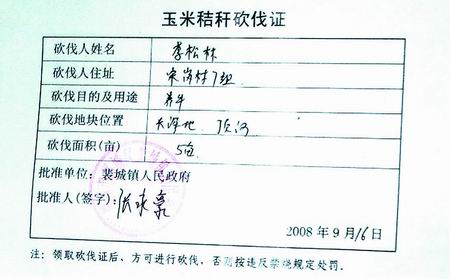 玉米秸秆砍伐证
砍伐人姓名 李松林
砍伐人住址 宋岗村7组
砍伐目的及用途 养牛
砍伐地块位置
砍伐面积(亩) 5亩
批准单位：裴城镇人民政府
批准人(签字)：
2008 年 9 月 16 日
注：领取砍伐证后、方可进行砍伐，否则按违反禁烧规定处罚.